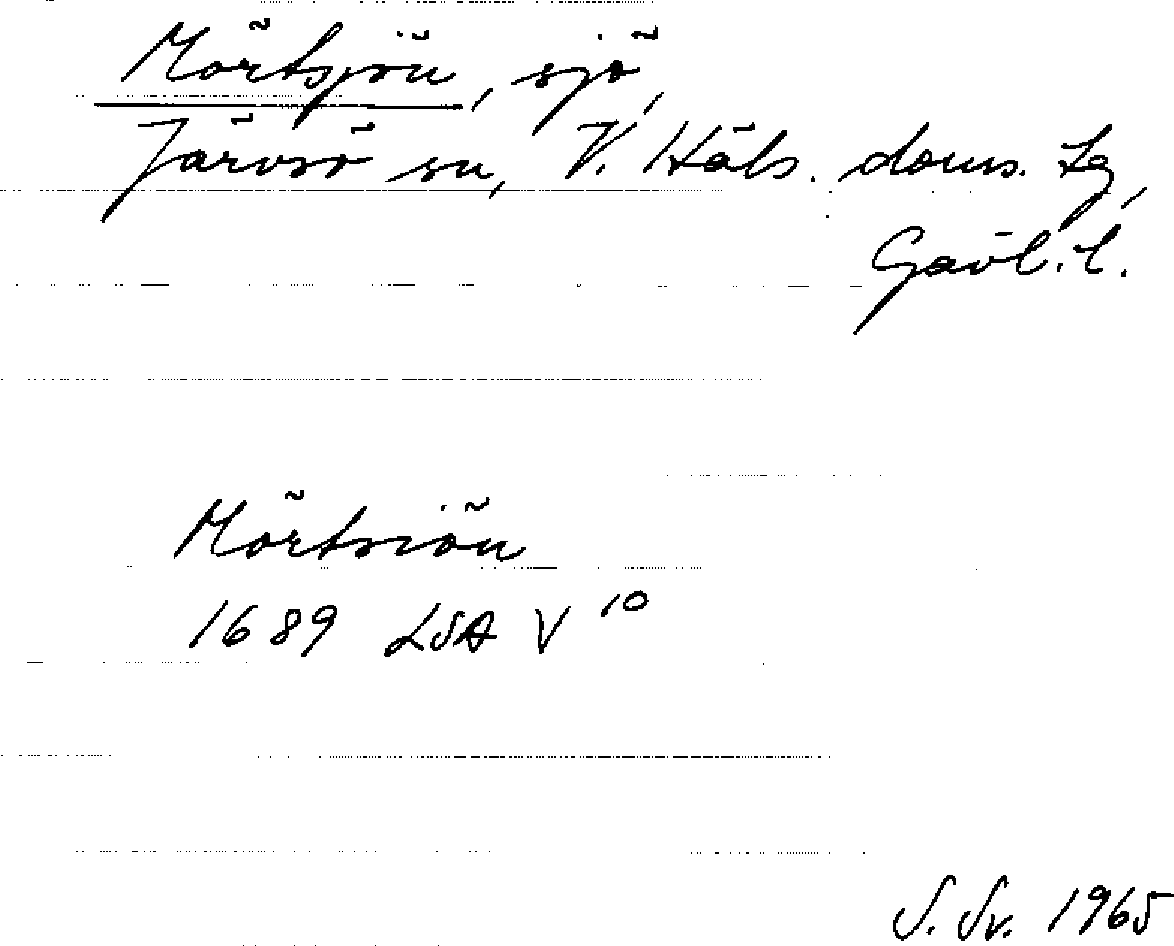 Mörtsjön, sjö,
Järvsö sn, V. Häls. doms. Lg,
Gävl. l.
Mörtsiön
1689 LSA V 10
S. Sv. 1965